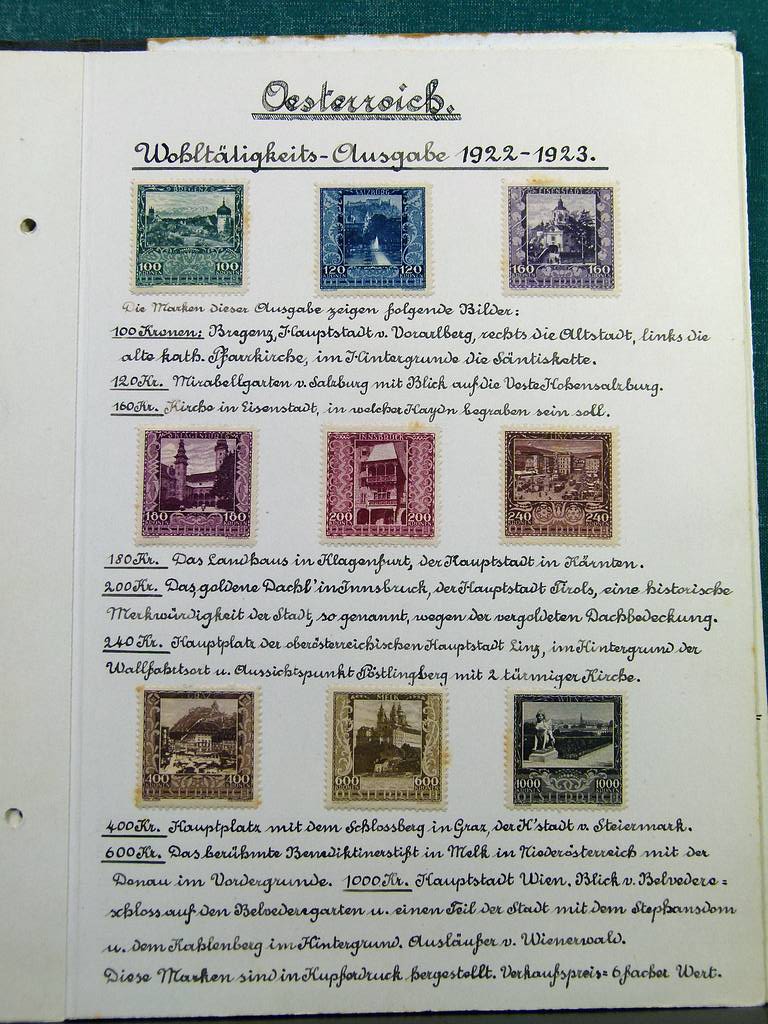 Oesterreich.
Wohltätigkeits-Ausgabe 1922-1923.
BREGENZ SALZBURG EISENSTADT
100 100 120 120 160 160
Die Marken dieser Ausgabe zeigen folgende Bilder:
100 Kronen: Bregenz, Hauptstadt v. Vorarlberg, rechts die Altstadt, links die
alte kath. Pfarrkirche, im Hintergrunde die Säntiskette.
120 Kr. Mirabellgarten v. Salzburg mit Blick auf die Veste Hohensalzburg.
160 Kr. Kirche in Eisenstadt, in welcher Haydn begraben sein soll.
KLAGENFURT INNSBRUCK LINZ
180 180 200 200 240 240
180 Kr. Das Landhaus in Klagenfurt, der Hauptstadt in Kärnten.
200 Kr. Das goldene Dachl' in Innsbruck, der Hauptstadt Tirols, eine historische
Merkwürdigkeit der Stadt, so genannt, wegen der vergoldeten Dachbedeckung.
240 Kr. Hauptplatz der oberösterreichischen Hauptstadt Linz, im Hintergrund der
Wallfahrtsort u. Aussichtspunkt Pöstlingberg mit 2 türmiger Kirche.
GRAZ MELK WIEN
400 400 600 600 1000 1000
400 Kr. Hauptplatz mit dem Schlossberg in Graz, der H'stadt v. Steiermark.
600 Kr. Das berühmte Benediktinerstift in Melk in Niederösterreich mit der
Donau im Vordergrunde. 1000 Kr. Hauptstadt Wien. Blick v. Belvedere=
schloss auf den Belvederegarten u. einen Teil der Stadt mit dem Stephansdom
u. dem Kahlenberg im Hintergrund. Ausläufer v. Wienerwald.
Diese Marken sind in Kupferdruck hergestellt. Verkaufspreis = 6 facher Wert.